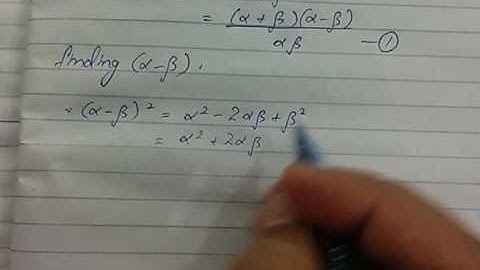 = (α + β)(α - β) / αβ — ①
finding (α - β).
(α - β)² = α² - 2αβ + β²
= α² + 2αβ